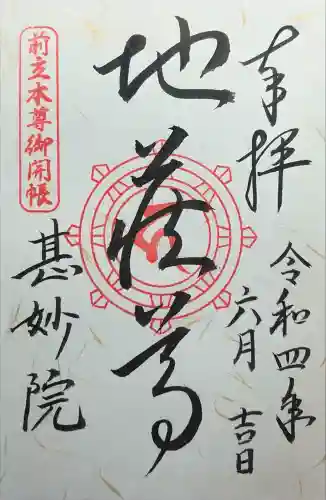 奉拝
令和四年
六月
吉日
地蔵尊
前立本尊御開帳
甚妙院